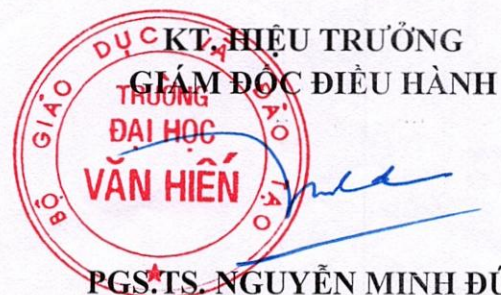 KT. HIỆU TRƯỞNG
GIÁM ĐỐC ĐIỀU HÀNH
BỘ GIÁO DỤC VÀ ĐÀO TẠO
TRƯỜNG
ĐẠI HỌC
VĂN HIẾN
PGS.TS. NGUYỄN MINH